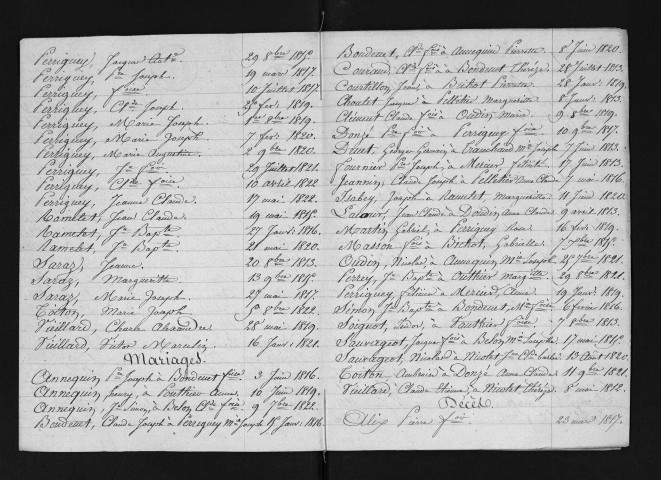 Perriguey, Jacques Ant.ne 29 8bre 1815.
Perriguey, P.re Joseph. 19 mars 1817.
Perriguey, f.çoise 10 Juillet 1817.
Perriguey, Cl.de Joseph 2 fev. 1819.
Perriguey, Marie Joseph. 8bre 1819.
Perriguey, Marie Joseph 7 fev. 1820.
Perriguey, Marie Augustine 2 9bre 1820.
Perriguey, J.n P.re 29 Juillet 1821.
Perriguey, Cl.de f.çoise 10 avril 1822
Perriguey, Jeanne Claude 17 mai 1822.
Ramelet, Jean Claude 19 mai 1815.
Ramelet, J.n Bapte 27 Janv. 1816.
Ramelet, J.n Bapte 21 mai 1820.
Saraz, Jeanne. 20 8bre 1813.
Saraz, Marguerite 13 9bre 1815.
Saraz, Marie Joseph. 2 mai 1817.
Toiton, Marie Joseph 5 8bre 1822.
Vieillard, Charles Alexandre 28 mai 1819.
Vieillard, Victor Marcelin 16 Janv. 1821.
Mariages.
Annequin, P.re Joseph à Bondenet f.çoise 3 Juin 1816.
Annequin, henry, à Pouthier Anne 10 Juin 1819.
Annequin, J.n Simon, à Belon Cl.de f.çoise 9 7bre 1822.
Bondenet, Claude Joseph à Perriguey M.ie Joseph 15 Janv. 1816.
Bondenet, Cl.de f.çois à Annequin Pierrette 8 Juin 1820.
Couraud, Cl.de f.çois à Bondenet Thérèze 28 Juillet 1813.
Courtillon, Jean à Bichet Pierrette 28 Janv. 1819.
Choulet Jacques à Pelletier Marguerite 8 Janv. 1813.
Clément Claude f.çois à Oudin, Marie 9 8bre 1819.
Donzé P.re à Perriguey f.çoise 10 9bre 1817.
Druet, Georges Xavier, à Tranchand M.ie Joseph 7 Juin 1813.
Fournier P.re Joseph, à Mercier, félicité 17 Juin 1813.
Jeannin, Claude Joseph à Pelletier Anne Claude 7 mai 1816.
Isabey, Joseph à Ramelet, Marguerite 11 Juin 1820.
Latour, Jean Claude à Doudin, Anne Claude 9 avril 1813.
Martin Gabriel, à Perriguey Rose 16 fevr. 1819.
Masson f.çois à Bichet, Gabrielle 7 7bre 1815.
Oudin, Nicolas à Annequin M.ie Joseph 25 7bre 1821.
Perrey, J.n Bapte à Outhier Marg.itte 29 8bre 1821.
Perriguey, Félicien à Mercier, Anne 19 Janv. 1819.
Simon J.n Bapte à Bondenet, M.ie f.çoise 6 février 1816.
Soignot, Isidor, à Pouthier f.çoise 7 8bre 1813.
Sauvageot, Jacques f.çois à Belon M.ie Josephe 17 mai 1815.
Sauvageot, Nicolas à Nicolet J.ne 13 Août 1820.
Toiton Ambroise à Donzé Anne Claude 11 9bre 1821.
Vieillard, Claude Etienne à Nicolet Thérèze 8 mai 1812.
Décès.
Alix Pierre f.çois 23 mars 1817.